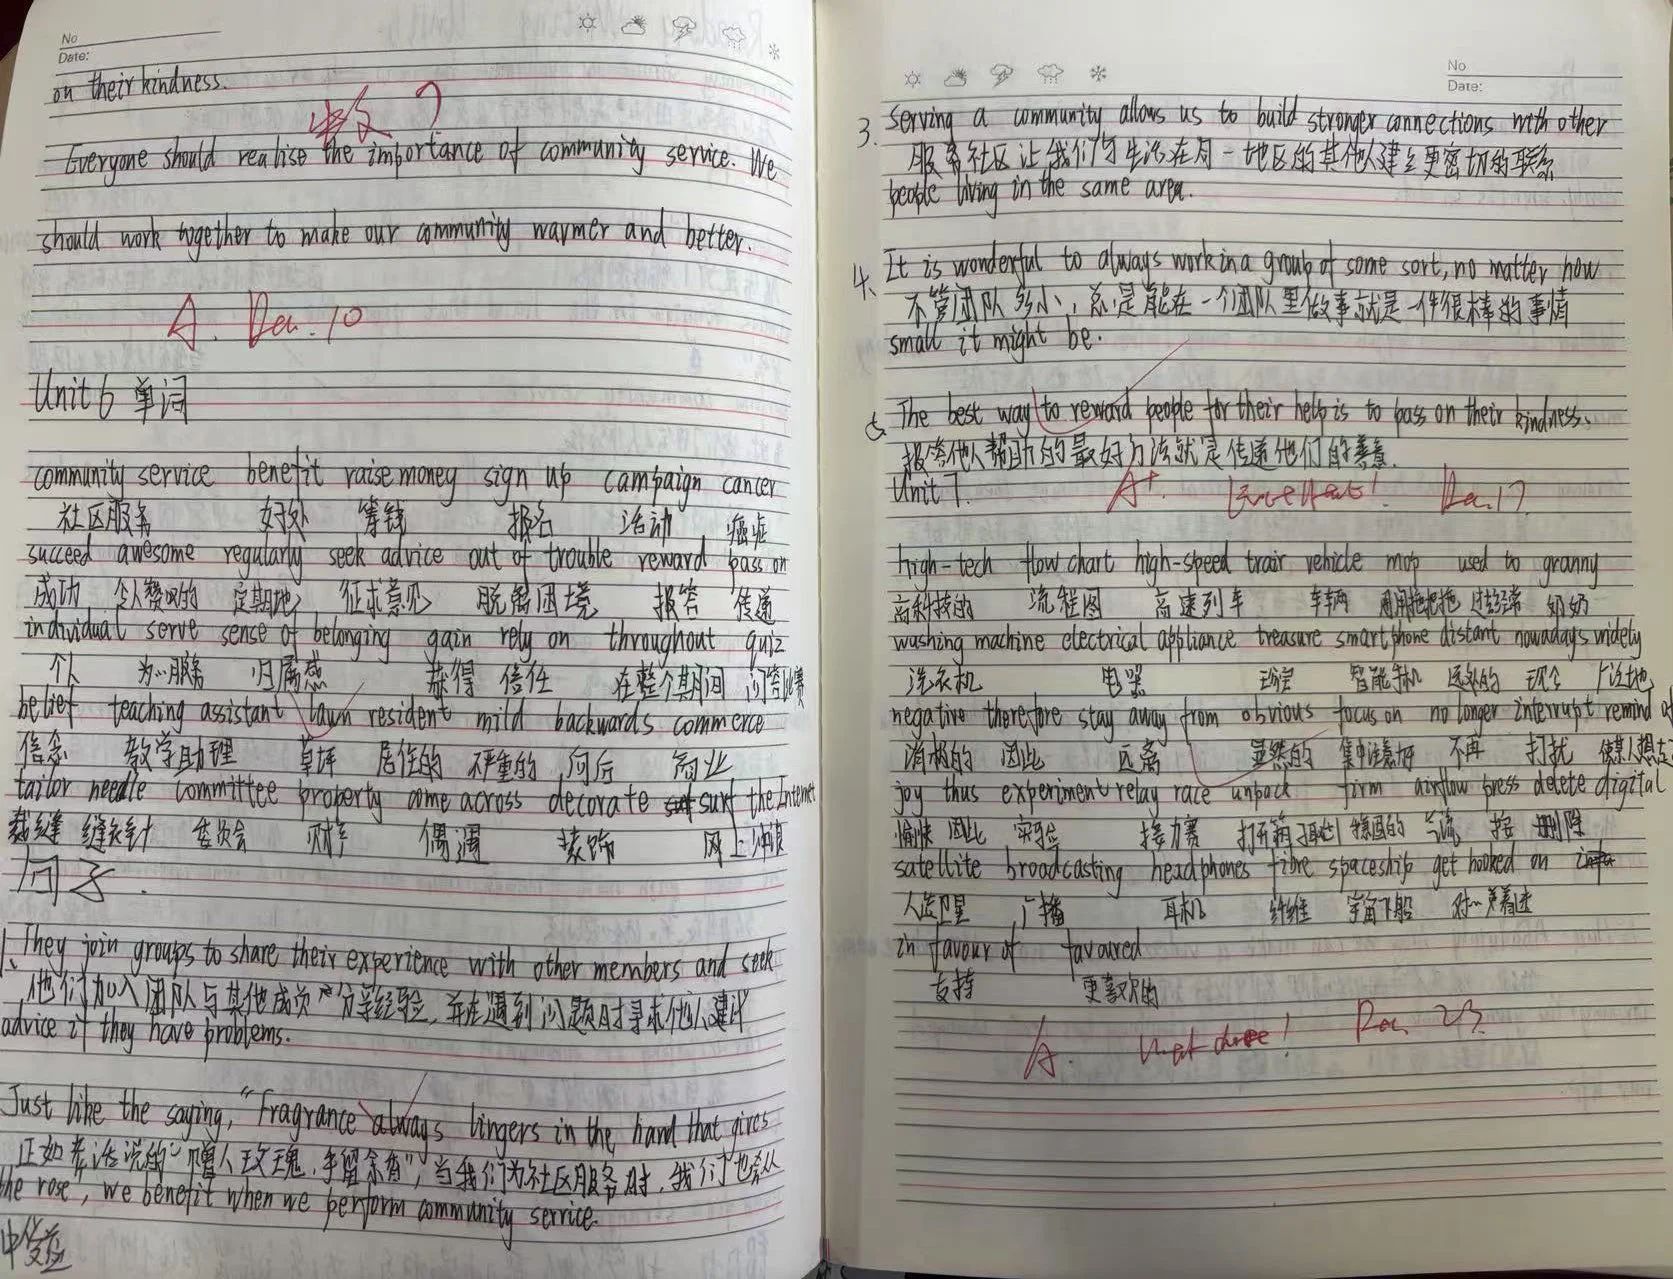 No
Date:
on their kindness.
中文?
Everyone should realise the importance of community service. We
should work together to make our community warmer and better.
A. Dec. 10
Unit 6 单词
community service benefit raise money sign up campaign cancer
社区服务 好处 筹钱 报名 活动 癌症
succeed awesome regularly seek advice out of trouble reward pass on
成功 令人赞叹的 定期地 征求意见 脱离困境 报答 传递
individual serve sense of belonging gain rely on throughout quiz
个人 为…服务 归属感 获得 信任 在整个期间 问答比赛
belief teaching assistant lawn resident mild backwards commerce
信念 教学助理 草坪 居住的 不严重的 向后 商业
tailor needle committee property come across decorate surf the Internet
裁缝 缝衣针 委员会 财产 偶遇 装饰 网上冲浪
句子.
1、They join groups to share their experience with other members and seek
他们加入团队与其他成员分享经验,并在遇到问题时寻求他人建议
advice if they have problems.
Just like the saying, "Fragrance always lingers in the hand that gives
正如老话说的"赠人玫瑰,手留余香",当我们为社区服务时,我们也会从
the rose", we benefit when we perform community service.
中受益
No
Date:
3. Serving a community allows us to build stronger connections with other
服务社区让我们与生活在同一地区的其他人建立更密切的联系
people living in the same area.
4、It is wonderful to always work in a group of some sort, no matter how
不管团队多小,总是能在一个团队里做事就是一件很棒的事情
small it might be.
5、The best way to reward people for their help is to pass on their kindness.
报答他人帮助的最好方法就是传递他们的善意.
Unit 7. A+. Excellent! Dec. 17
high-tech flow chart high-speed train vehicle mop used to granny
高科技的 流程图 高速列车 车辆 用拖把拖 过去经常 奶奶
washing machine electrical appliance treasure smartphone distant nowadays widely
洗衣机 电器 珍宝 智能手机 远处的 现今 广泛地
negative therefore stay away from obvious focus on no longer interrupt remind of
消极的 因此 远离 显然的 集中注意于 不再 打扰 使某人想起
joy thus experiment relay race unpack firm airflow press delete digital
愉快 因此 实验 接力赛 打开箱子取出 稳固的 气流 按 删除
satellite broadcasting headphones fibre spaceship get hooked on
人造卫星 广播 耳机 纤维 宇宙飞船 对…着迷
in favour of favoured
支持 更喜欢的
A. Dec. 23